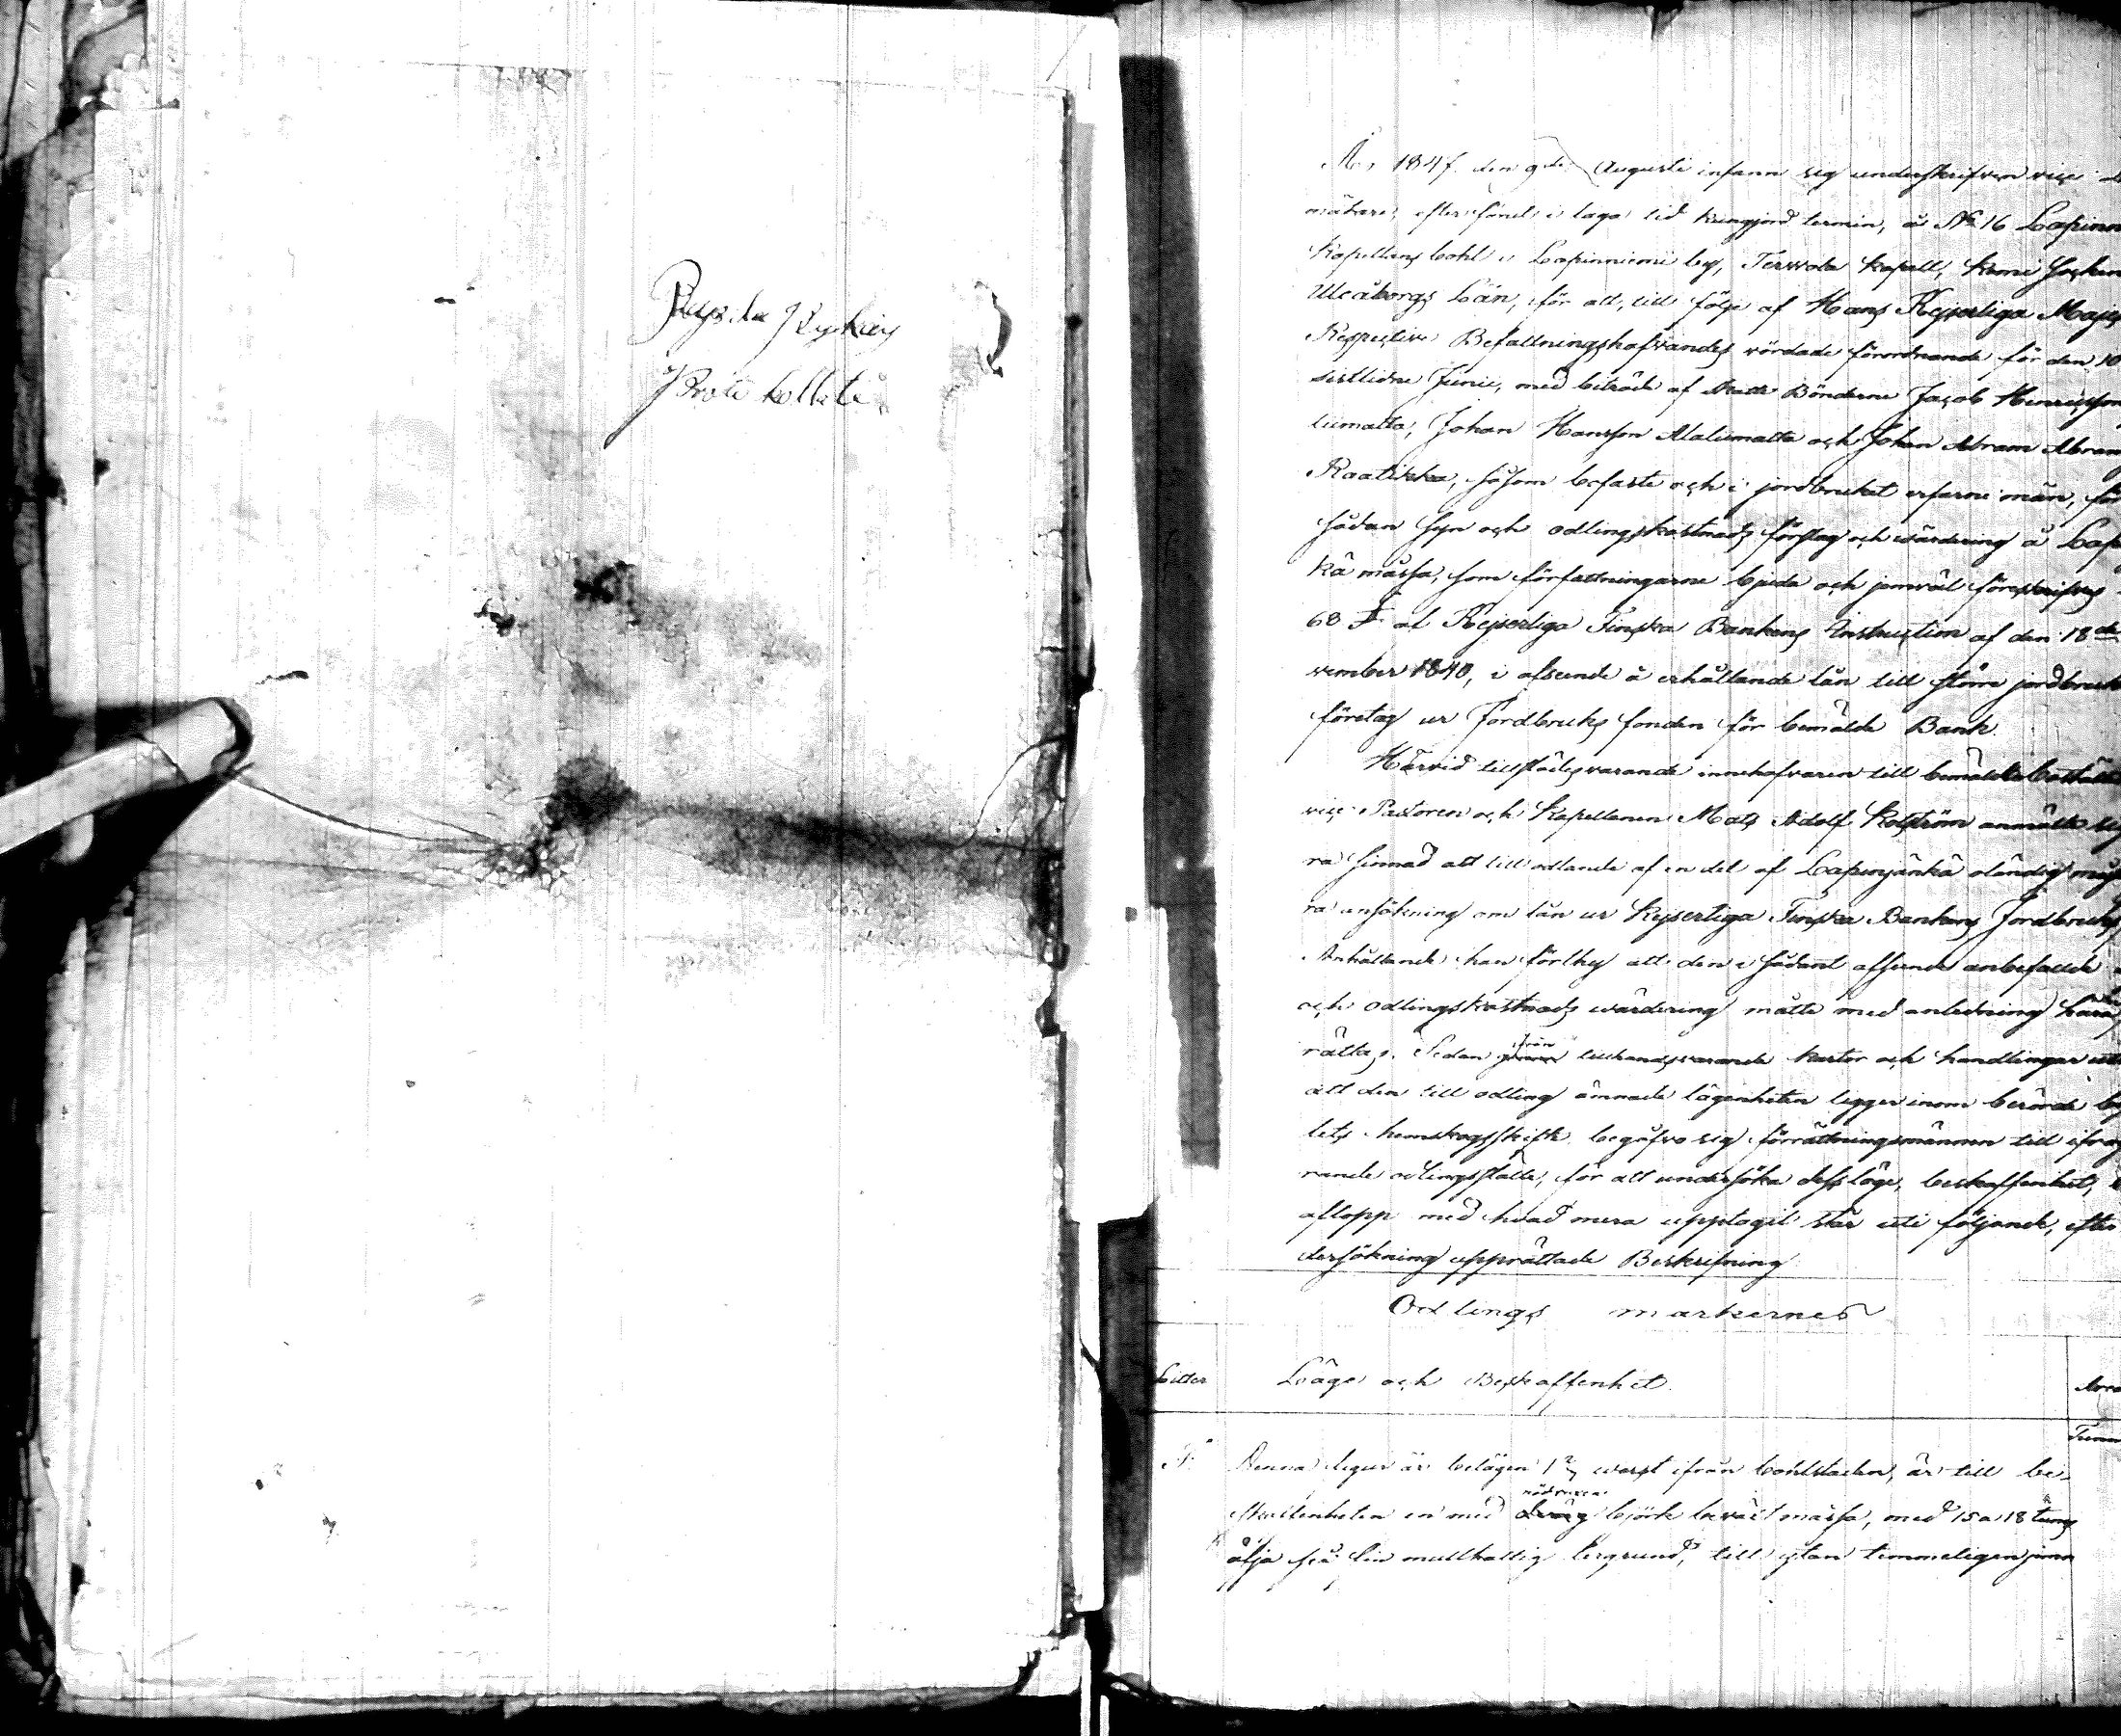 Protokollet
År 1847 den 9de Augusti infann sig underskrifven vice
mätare, efter förut i laga tid kungjord termin, å No 16 Lapinn
Kapellans bohl i Lapinniemi by, Terwola kapell, Kemi Socken
Uleåborgs Län, för att, till följe af Hans Kejserliga Majes
Respective Befallningshafvandes vördade förordnande för den 10
sistlidne Junii, med biträde af Skatte Bönderne Jacob Henricsson
liimatta, Johan Hansson Alaliimatta och Johan Abram Abram
Raatikka, såsom bofaste och i jordbruket erfarne män, för
sådan syn och odlingskostnads förslag och värdering å Lap
kä måssa, som författningarne bjuda och jemväl föreskrifves
68 § af Kejserliga Finska Bankens Instruction af den 18de
vember 1840, i afseende å erhållande lån till större jordbruk
företag ur Jordbruks fonden för bemälde Bank.
Härvid tillstädesvarande innehafvaren till bemälde boställe
vice Pastoren och Kapellanen Mats Adolf Kolström anmälte sig
ra sinnad att till odlande af en del af Lapinjänkä oländig
ra ansökning om lån ur Kejserliga Finska Bankens Jordbruks
Anhållande han förthy att den i sådant afseende anbefallde
och odlingskostnads värdering måtte med anledning häraf
rättas. Sedan ifrån tillhandsvarande kartor och handlingar
att den till odling ämnade lägenheten ligger inom berörde
lets hemskogsskifte begåfvo sig förrättningsmännen till ifrag
rande odlingsställe, för att undersöka dess läge, beskaffenhet,
aflopp med hvad mera upptagit står uti följande, efter
dersökning upprättade Beskrifning
Odlings markernes
Litter Läge och Beskaffenhet. Area
Tunn
F. Denna figur är belägen 1 2/3 werst ifrån bohlstaden, är till be-
skaffenheten en med björk beväxt måssa, med 15 a 18 tums
ålja på fin mullhaltig lergrund, till ytan temmeligen jemn